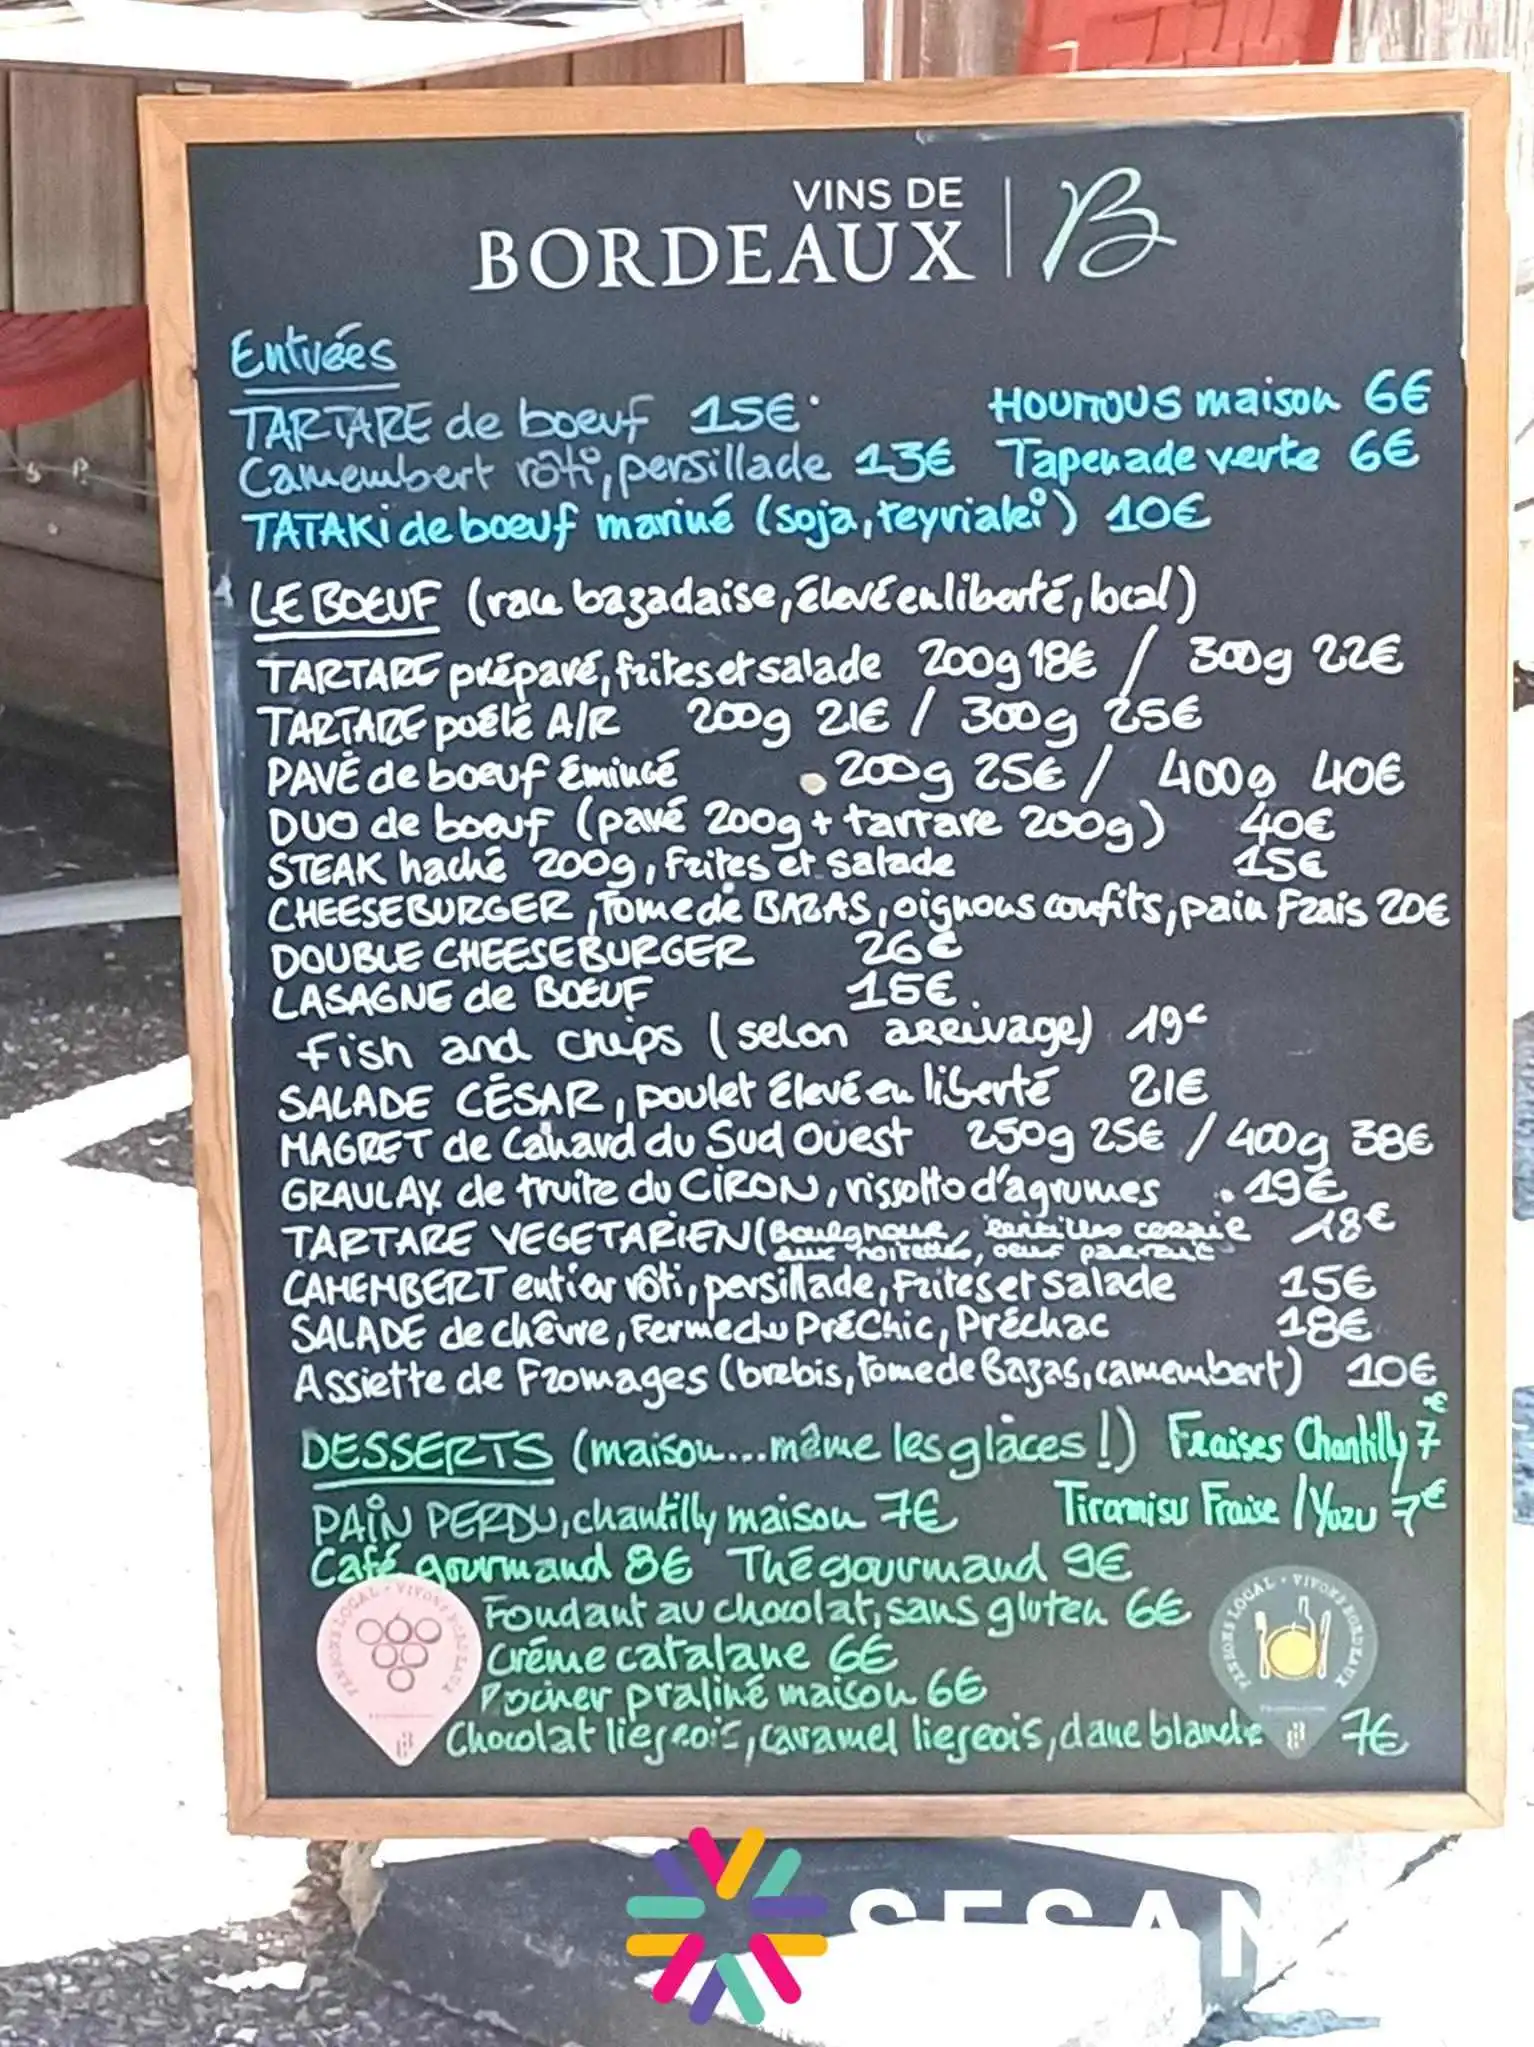 VINS DE
BORDEAUX B
Entrées
TARTARE de boeuf 15€ HOUMOUS maison 6€
Camembert rôti, persillade 13€ Tapenade verte 6€
TATAKi de boeuf mariné (soja, teyriaki) 10€
LE BOEUF (race bazadaise, élevé en liberté, local)
TARTARE préparé, frites et salade 200g 18€ / 300g 22€
TARTARE poêlé A/R 200g 21€ / 300g 25€
PAVÉ de boeuf émincé 200g 25€ / 400g 40€
DUO de boeuf (pavé 200g + tartare 200g) 40€
STEAK haché 200g, Frites et Salade 15€
CHEESEBURGER, Tome de BAZAS, oignons confits, pain Frais 20€
DOUBLE CHEESEBURGER 26€
LASAGNE de BOEUF 15€.
Fish and chips (selon arrivage) 19€
SALADE CÉSAR, poulet élevé en liberté 21€
MAGRET de Canard du Sud Ouest 250g 25€ / 400g 38€
GRAULAX de truite du CIRON, rissotto d'agrumes 19€
TARTARE VEGETARIEN (Boulghour, lentilles corail 18€
aux noisettes, oeuf parfait
CAMEMBERT entier rôti, persillade, Frites et Salade 15€
SALADE de chèvre, Ferme du PréChic, Préchac 18€
Assiette de Fromages (brebis, tome de Bazas, camembert) 10€
DESSERTS (maison....même les glaces !) Fraises Chantilly 7€
PAiN PERDU, chantilly maison 7€ Tiramisu Fraise / Yuzu 7€
Café gourmand 8€ Thé gourmand 9€
Fondant au chocolat, sans gluten 6€
Créme catalane 6€
Rocher praliné maison 6€
Chocolat liegeois, caramel liegeois, dame blanche 7€
PENSONS LOCAL • VIVONS BORDEAUX
PENSONS LOCAL • VIVONS BORDEAUX